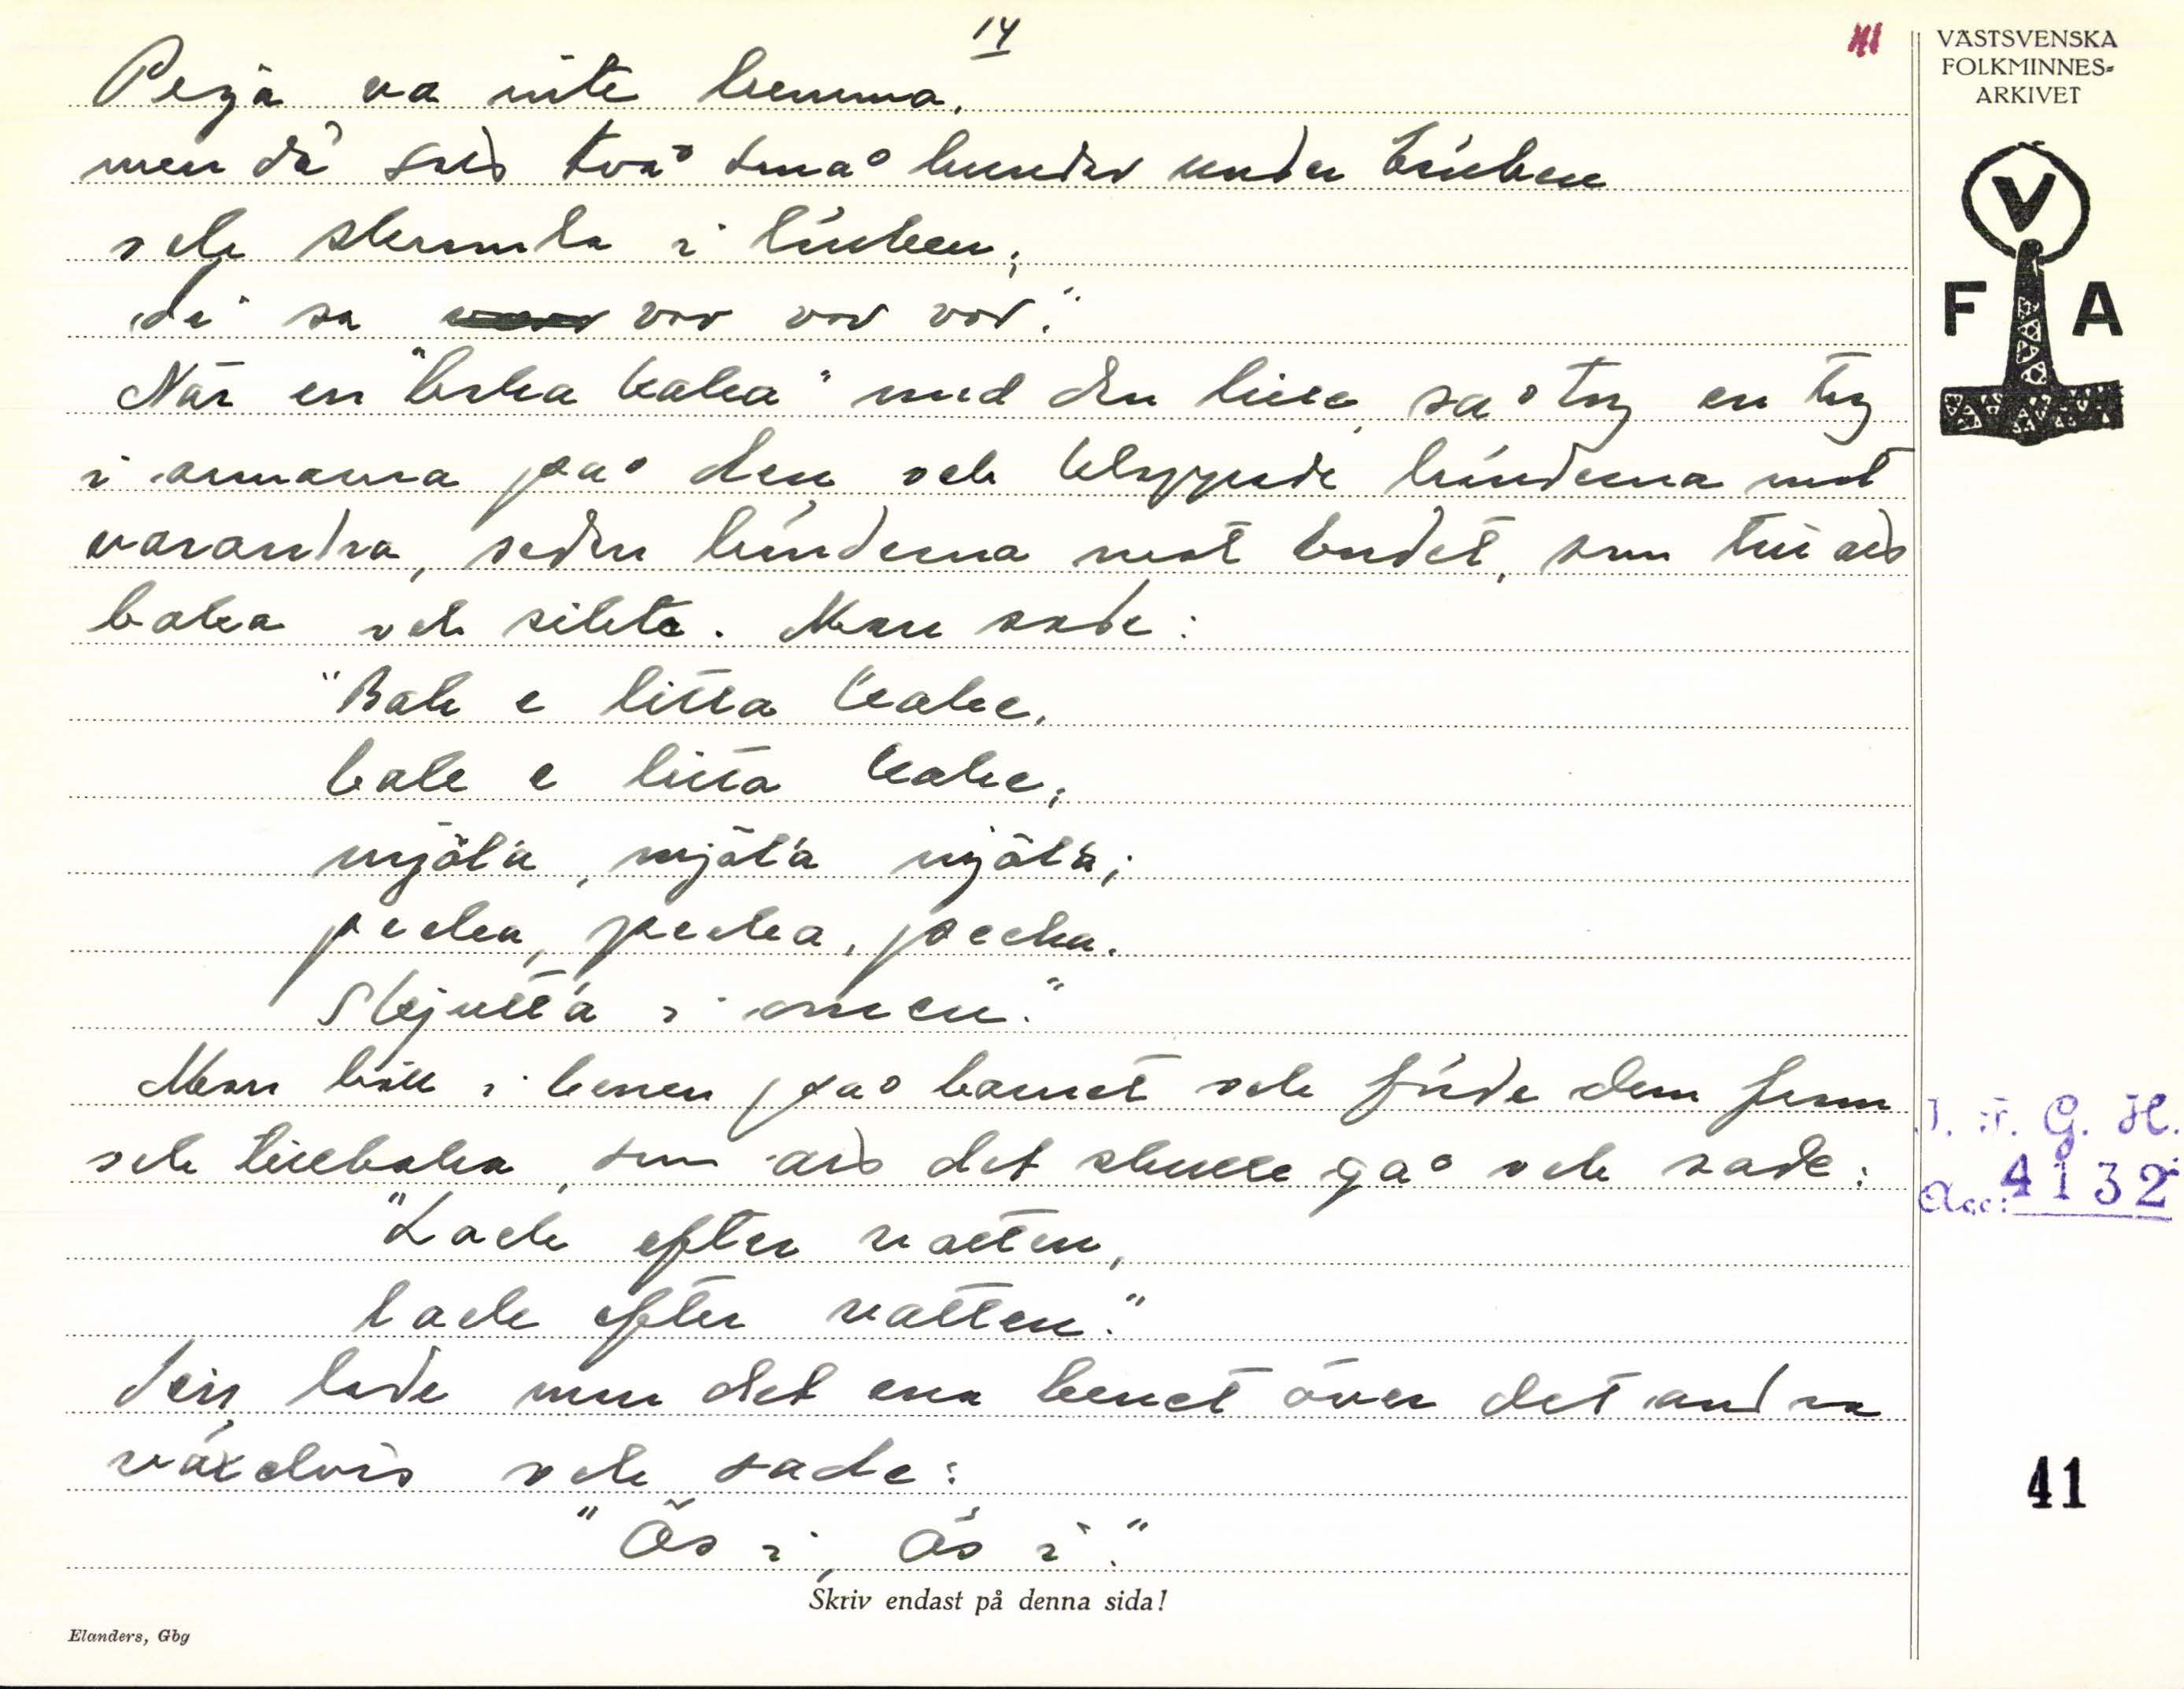 14
41
VÄSTSVENSKA
FOLKMINNES=
ARKIVET
V
F A
Pejä va inte hemma,
men dä två små hundar under bänken
och skramla i länken;
di sa vov vov vov."
När en "baka kaka" med den lille, så tog en tag
i armarna på den, och klappade händerna mot
varandra, sedan händerna mot bordet, som till att
baka och sikta. Man sade:
"Bak e litta kake,
bak e litta kake;
mjöl'a, mjöl'a mjöl'a;
pecka, pecka, pecka.
Skjutt'a i omen."
Man höll i benen på barnet och förde dem fram
och tillbaka, som att det skulle gå och sade:
"Lack efter vatten,
lack efter vatten."
Sen lade man det ena benet över det andra
växelvis och sade:
"Ös i, ös i."
J. F. G. H.
Acc: 4132
41
Skriv endast på denna sida!
Elanders, Gbg